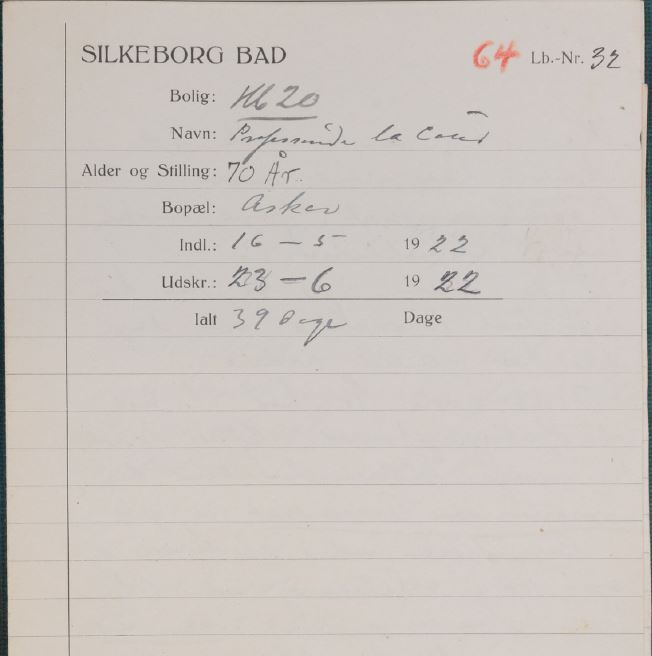 SILKEBORG BAD 64 Lb.-Nr. 32
Bolig: Hb 20
Navn: Professorinde la Cour
Alder og Stilling: 70 År.
Bopæl: Askov
Indl.: 16 - 5 1922
Udskr.: 23 - 6 1922
Ialt 39 Dage Dage